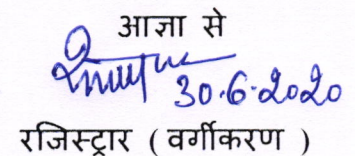 आज्ञा से
30.6.2020
रजिस्ट्रार ( वर्गीकरण )